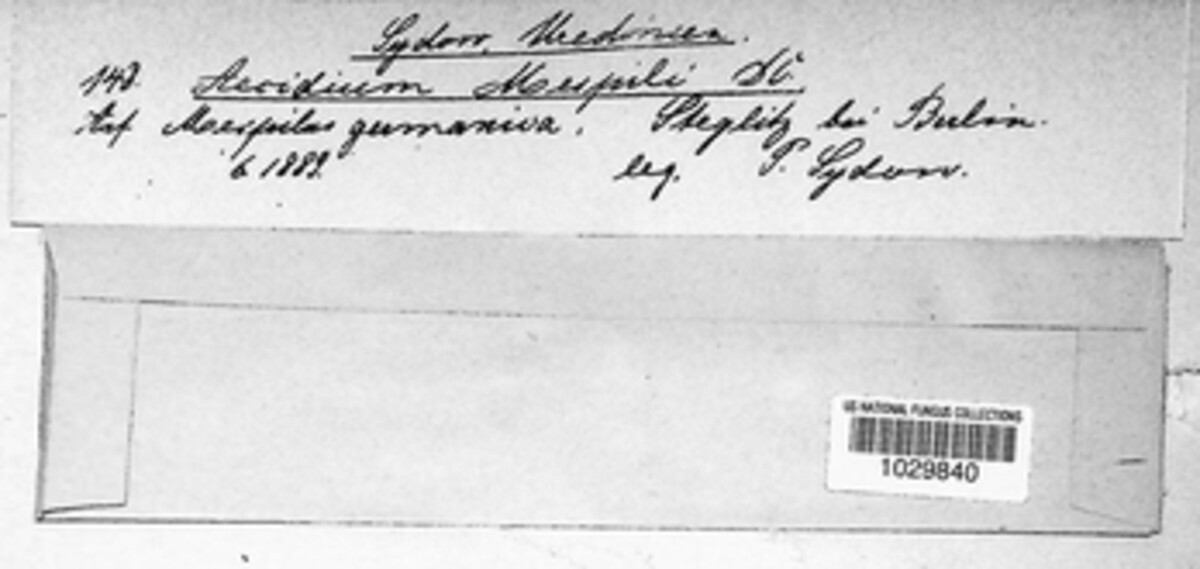 Sydow, Uredineen.
148. Aecidium Mespili DC.
Auf Mespilus germanica. Steglitz bei Berlin.
6 1889. leg. P. Sydow.
US NATIONAL FUNGUS COLLECTIONS
1029840